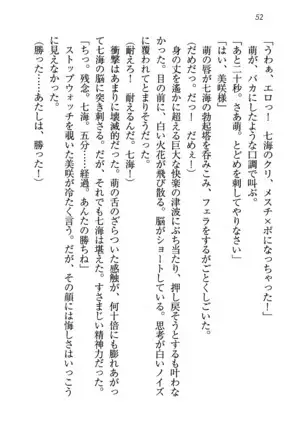 52
「うわぁ、エロっ！　七海のクリ、メスチ×ポになっちゃった！」
萌が、バカにしたような口調で叫ぶ。
「あと二十秒。さあ萌。とどめを刺してやりなさい」
「はい、美咲様」
萌の唇が七海の勃起塔を呑みこみ、フェラをするがごとくしごいた。
（だめだっ。だっ！　だめだ！）
身の丈を遙かに超える巨大な快楽の津波にぶち当たり、押し戻そうとするも叶わな
かった。目の前に、白い火花が飛び散る。脳がショートしている。思考が白いノイズ
に覆われてとまりそうだった。
（耐えろ！　耐えるんだ！　七海！）
衝撃はあまりに壊滅的だった。萌の舌のざらついた感触が、何十倍にも膨れあがっ
て七海の脳に突き刺さる。だが、それでも七海は堪えた。すさまじい精神力だった。
「ちっ。残念。七海。五分――経過。あんたの勝ちね」
ストップウォッチを覗いた美咲が冷たく言う。だが、その顔には悔しさはいっこう
に浮かばなかった。
（勝った――あたしは、勝った！）